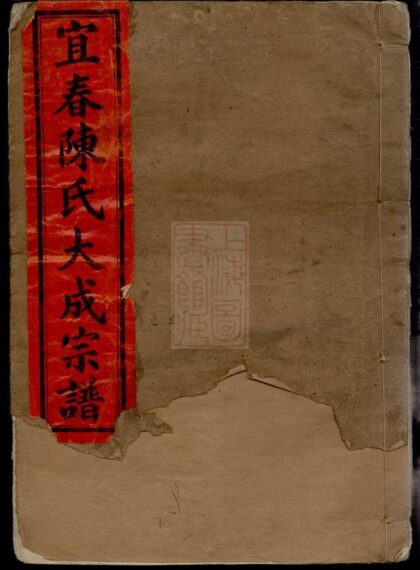 宜春陳氏大成宗譜
上海圖書館藏